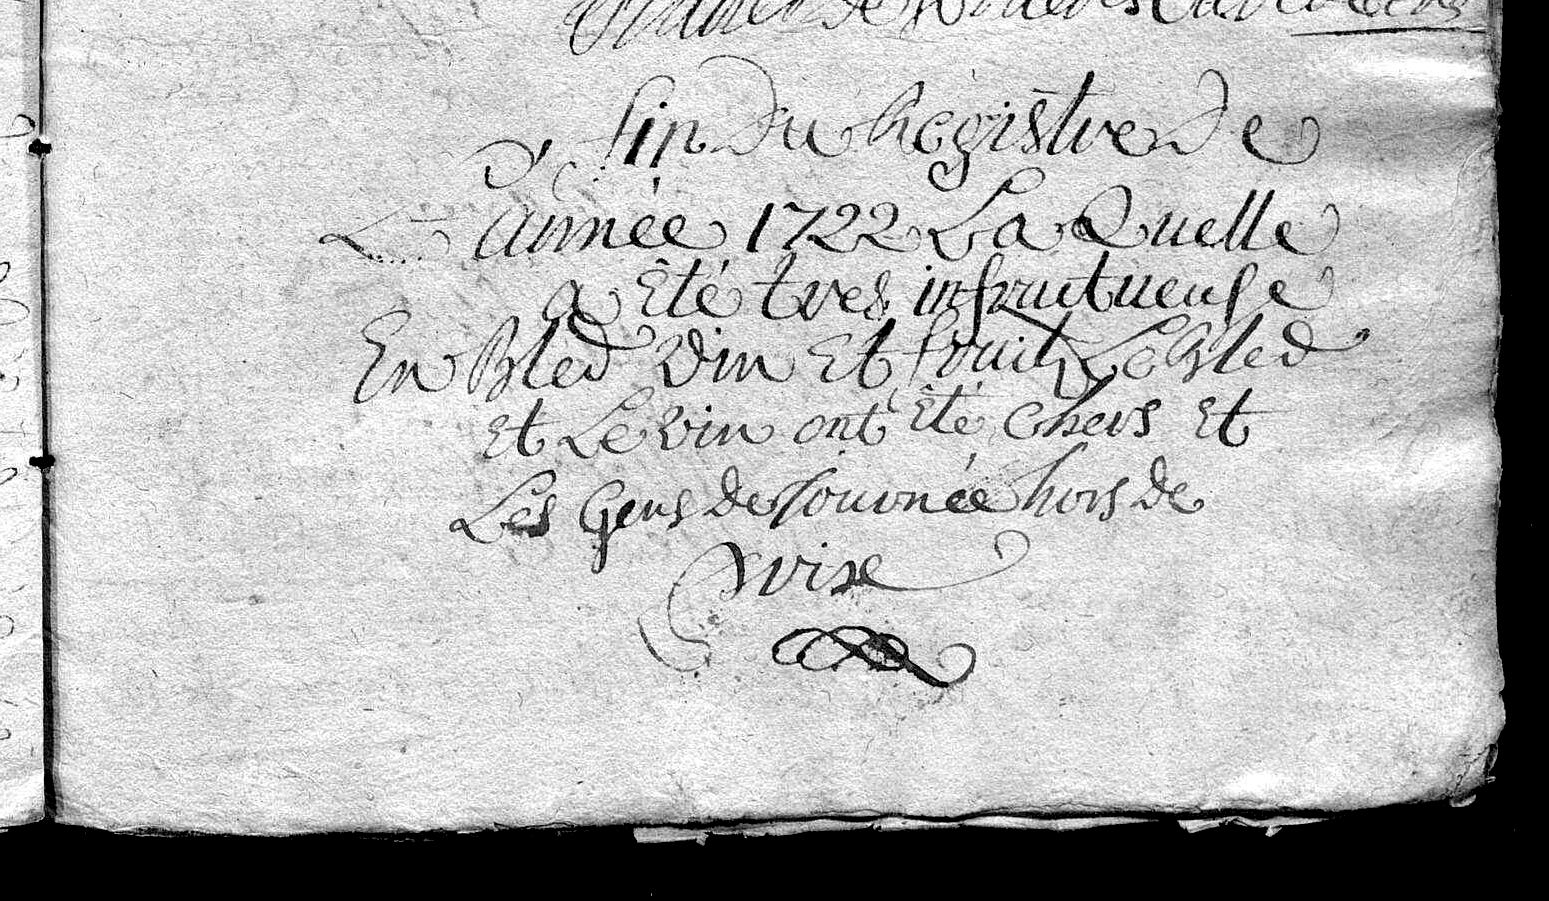 fin Du Registre De
L'année 1722 La Quelle
a Eté tres infructueuse
En Bled Vin Et fruit Le Bled
et Le vin ont Eté chers Et
Les Gens de Journée hors de
prix